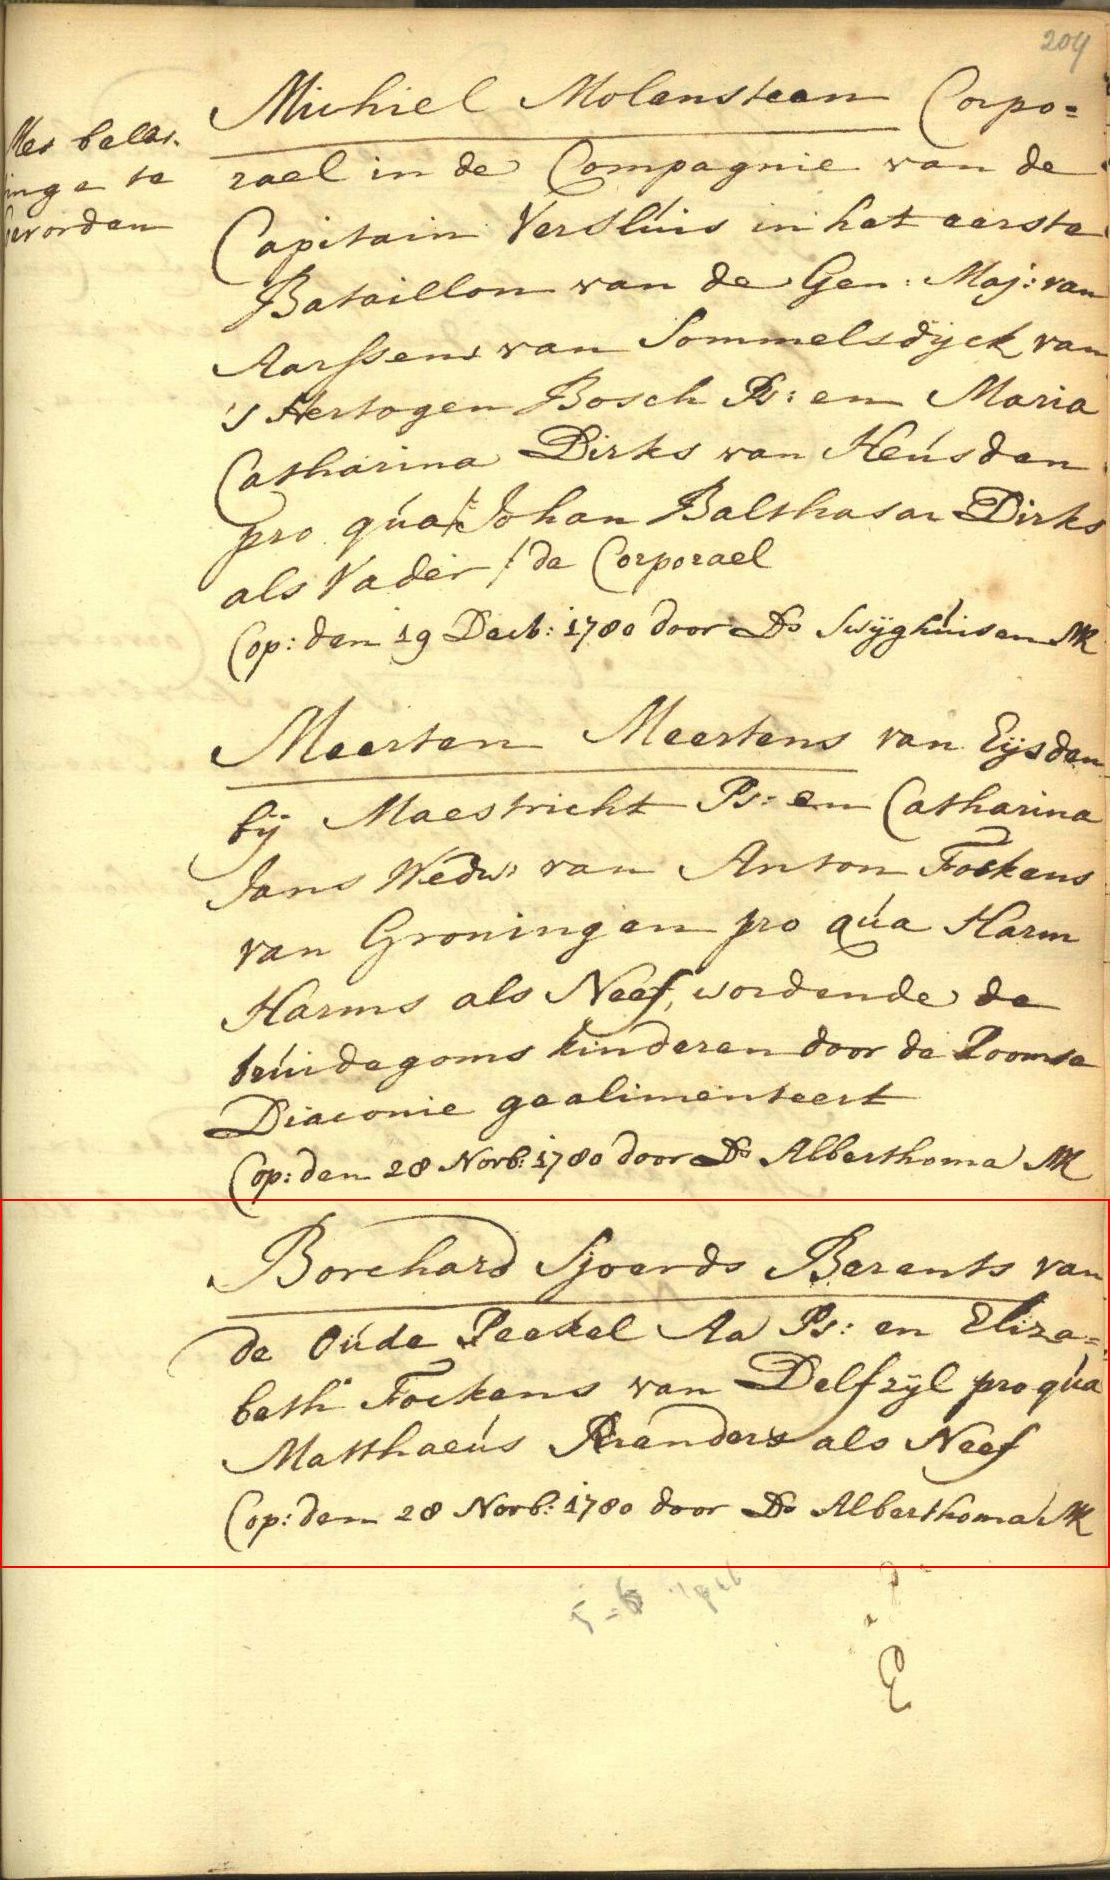 204
Met belas.
inge te
worden
Michiel Molensteen Corpo=
rael in de Compagnie van de
Capitain Versluis in het eerste
Bataillon van de Gen: Maj: van
Aarssens van Sommelsdijck van
's Hertogen Bosch Ps: en Maria
Catharina Dirks van Heusden
pro qua /: Johan Balthasar Dirks
als Vader / de Corporael
Cop: den 19 Decb: 1780 door Ds Swijghuisen MK
Meerten Meertens van Eijsden
bij Maestricht Ps: en Catharina
Jans Wedw: van Anton Fockens
van Groningen pro qua Harm
Harms als Neef, wordende de
bruidegoms kinderen door de Roomse
Diaconie gealimenteert
Cop: den 28 Novb: 1780 door Ds Alberthoma MK
Borchard Sjoerds Berents van
de Oude Peekel Aa Ps: en Eliza=
beth Fockens van Delfzijl pro qua
Matthaeus Renders als Neef
Cop: den 28 Novb: 1780 door Ds Alberthoma MK